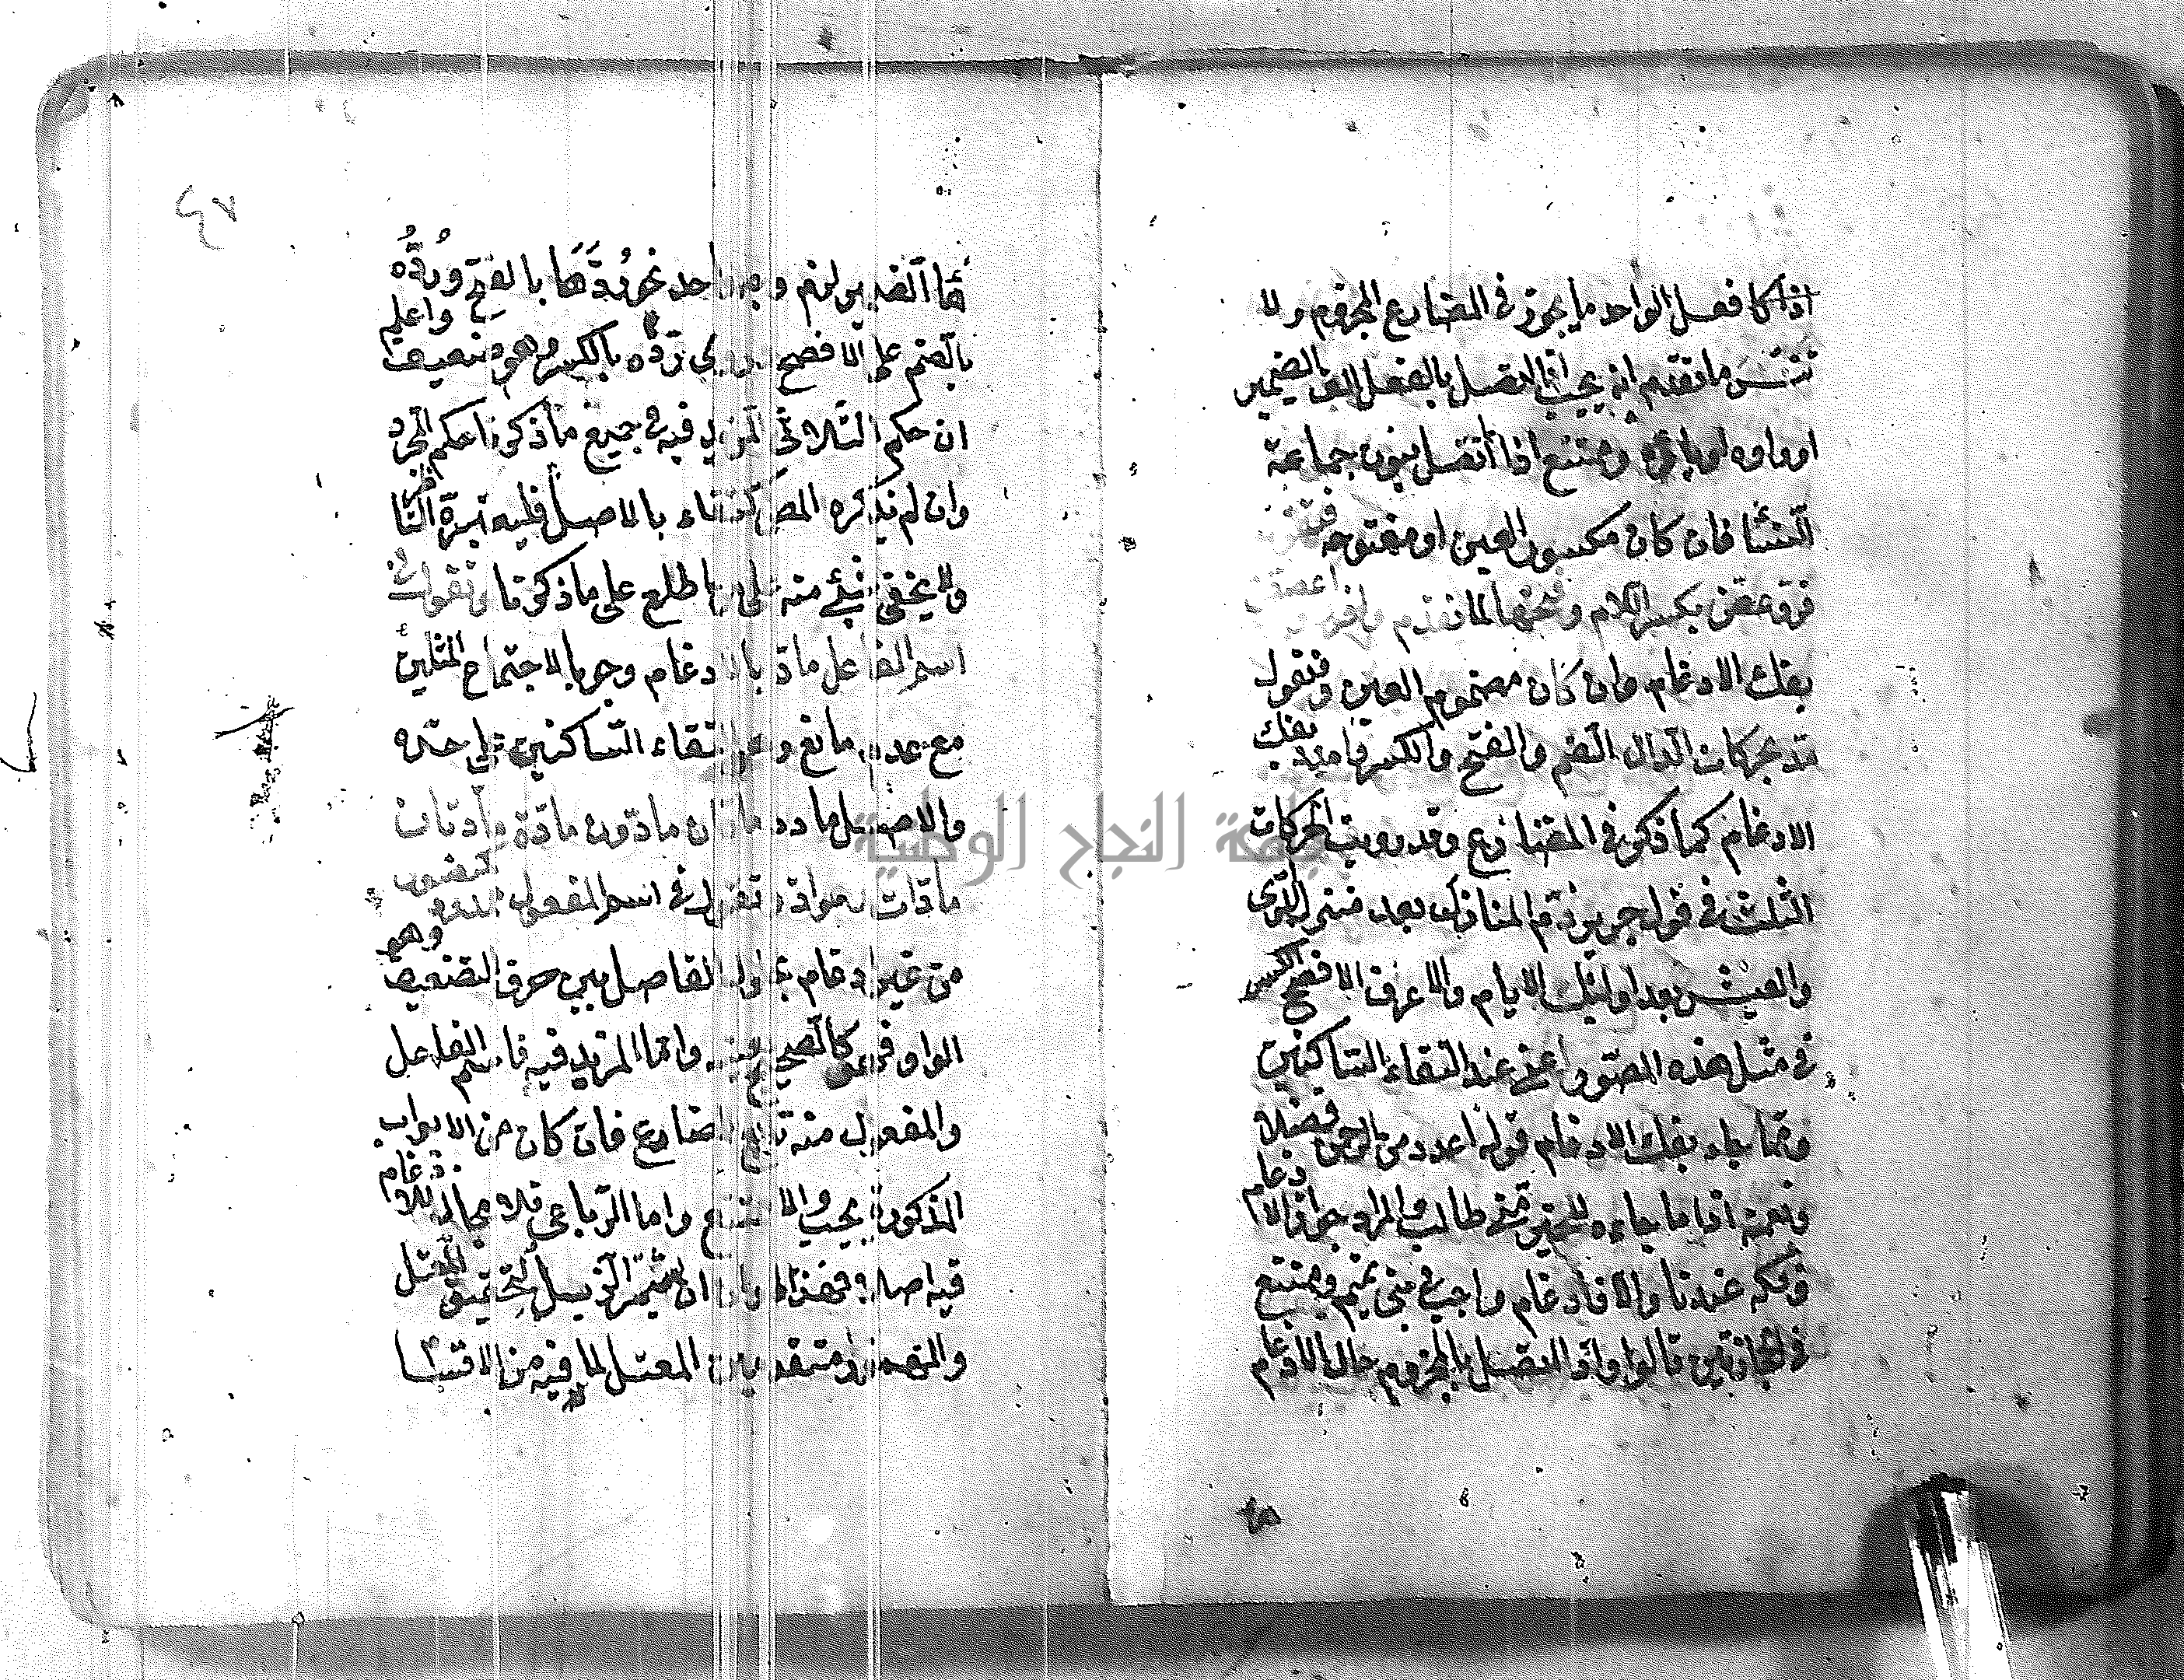 اذا كا فعل الواحد ما يجوز في المضارع المجزوم ولا
تنس ما تقدم انه يجب اذا اتصل بالفعل الف الضمير
او واوه او ياؤه ويمتنع اذا اتصل بنون جماعة
النسا فان كان مكسور العين او مفتوحه فتقول
فر وعض بكسر اللام وفتحها لما تقدم وافرر و اعضض
بفك الادغام وان كان مضموم العين فتقول
مد بحركات الدال الضم والفتح والكسر وامدد بفك
الادغام كما ذكر في المضارع وقد رويت الحركات
الثلث في قول جرير ذم المنازل بعد منزلة اللوى
والعيش بعد اولئك الايام والاعرف الافصح الكسر
في مثل هذه الصور اعني عند التقاء الساكنين
ومما جاء بفك الادغام قوله اعدد من الرحمن فضلا
ونعمة اذا ما جاء للخير طالب والمراد جواز الادغام
وفكه عندنا والا فادغام واجب في بني تميم ويمتنع
في الحجازيين قالوا واذ اتصل بالمجزوم حال الادغام
٤٧
هما الضمير لزم وجه واحد نحو ردها بالفتح ورده
بالضم على الافصح وروي رده بالكسر وهو ضعيف واعلم
ان حكم الثلاثي المزيد فيه في جميع ما ذكرنا حكم المجرد
وان لم يذكره المص اكتفاء بالاصل فليعتبره الناظر
ولا يخفى شيء منه على من اطلع على ما ذكرنا وتقول في
اسم الفاعل ماد بالادغام وجوبا لاجتماع المثلين
مع عدم مانع وهو التقاء الساكنين على حده
والاصل مادد مادان مادون مادة مادتان
مادات ومواد وتقول في اسم المفعول ممدود كمنصور
من غير ادغام لحصول الفاصل بين حرفي التضعيف وهو
الواو فهو كالصحيح بعينه واما المزيد فيه فاسم الفاعل
والمفعول منه تابع للمضارع فان كان من الابواب
المذكورة يجب والا يمتنع واما الرباعي فلا مجال للادغام
فيه اصلا فهذا اوان ان نشمر الذيل لتحقيق المعتل
والمهموز متقدمين المعتل لما فيه من الاقتسا